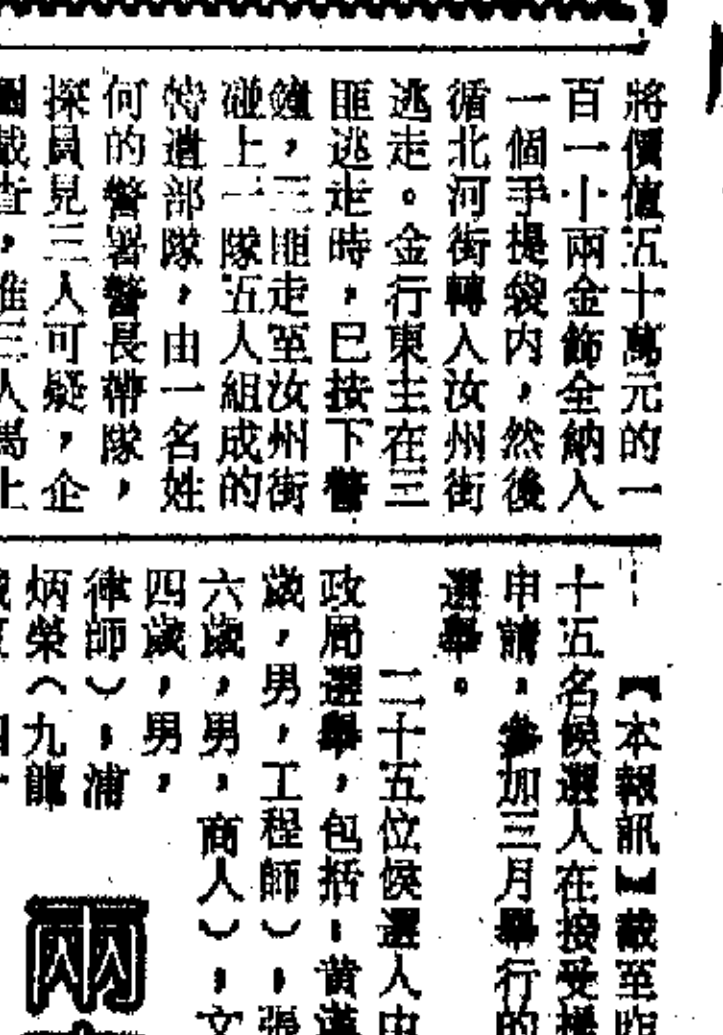 將價值五十萬元的一
百一十兩金飾全納入
一個手提袋內，然後
循北河街轉入汝州街
逃走。金行東主在三
匪逃走時，已按下警
鐘，三匪走至汝州街
碰上一隊五人組成的
特遣部隊，由一名姓
何的警署警長帶隊，
探員見三人可疑，企
圖截查，惟三人馬上
【本報訊】截至昨
十五名候選人在接受提
申請，參加三月舉行的
選舉。
二十五位候選人中
政局選舉，包括：黃漢
歲，男，工程師），張
六歲，男，商人），文
四歲，男，
律師），浦
炳榮（九龍
兩